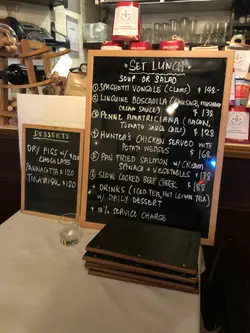 SET LUNCH
SOUP OR SALAD
① SPAGHETTI VONGOLE (CLAMS) $148-
② LINGUINE BOSCAIOLA (SAUSAGE, MUSHROOM
CREAM SAUCE) $138
③ PENNE AMATRICIANA (BACON,
TOMATO SAUCE, CHILI) $128
④ HUNTER'S CHICKEN SERVED WITH
POTATO WEDGES $168
⑤ PAN FRIED SALMON W/ CREAM
SPINACH + VEGETABLES $178
⑥ SLOW COOKED BEEF CHEEK $188
DRINKS (ICED TEA, HOT LEMON TEA)
W/ DAILY DESSERT
+ 10% SERVICE CHARGE
DESSERTS
DRY FIGS W/
CHOCOLATES
PANNACOTTA $120
TIRAMISU $120